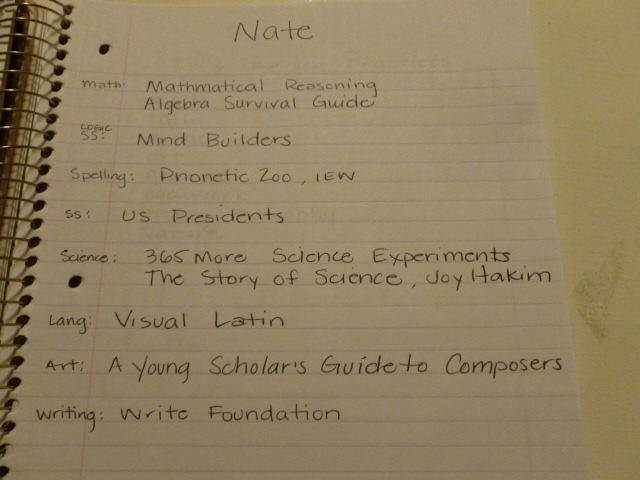 Nate
math: Mathmatical Reasoning
Algebra Survival Guide
LOGIC
SS: Mind Builders
Spelling: Phonetic Zoo, IEW
SS: US Presidents
Science: 365 More Science Experiments
The Story of Science, Joy Hakim
Lang: Visual Latin
Art: A Young Scholar's Guide to Composers
Writing: Write Foundation